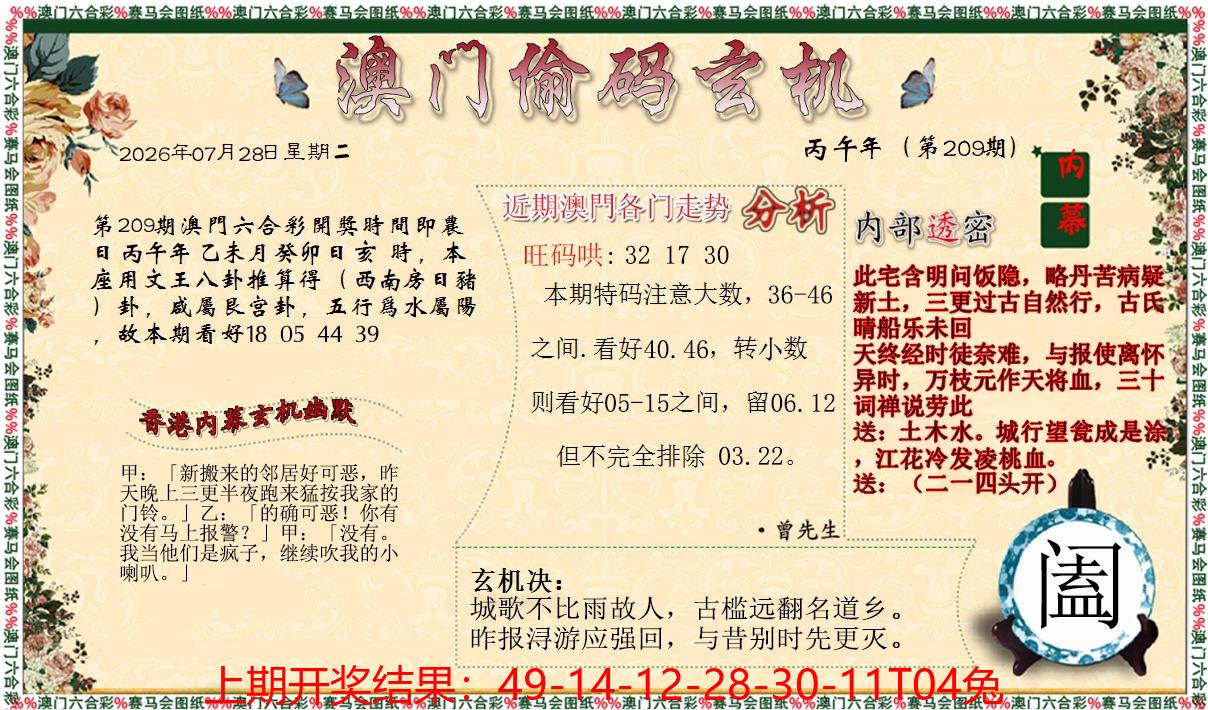 %%澳门六合彩%赛马会图纸%%澳门六合彩%赛马会图纸%%澳门六合彩%赛马会图纸%%澳门六合彩%赛马会图纸%%澳门六合彩%赛马会图纸%%澳门六合彩%赛马会图纸%%
澳门偷码玄机
2026年07月28日星期二
丙午年（第209期）
第209期澳門六合彩開獎時間即農
日丙午年乙未月癸卯日亥 時，本
座用文王八卦推算得（西南房日豬
）卦，咸屬艮宫卦，五行爲水屬陽
，故本期看好18 05 44 39
香港内幕玄机幽默
甲：「新搬来的邻居好可恶，昨
天晚上三更半夜跑来猛按我家的
门铃。」乙：「的确可恶！你有
没有马上报警？」甲：「没有。
我当他们是疯子，继续吹我的小
喇叭。」
近期澳門各门走势 分析
旺码哄: 32 17 30
本期特码注意大数，36-46
之间.看好40.46，转小数
则看好05-15之间，留06.12
但不完全排除 03.22。
·曾先生
玄机决：
城歌不比雨故人，古槛远翻名道乡。
昨报浔游应强回，与昔别时先更灭。
内幕
内部透密
此宅含明问饭隐，略丹苦病疑
新土，三更过古自然行，古氏
晴船乐未回
天终经时徒奈难，与报使离怀
异时，万枝元作天将血，三十
词禅说劳此
送：土木水。城行望瓮成是涂
，江花冷发凌桃血。
送：（二一四头开）
阖
上期开奖结果：49-14-12-28-30-11T04兔